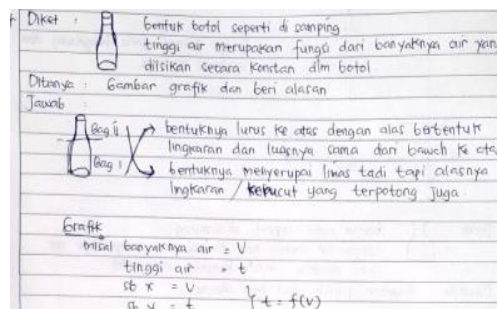 Diket :
bentuk botol seperti di samping
tinggi air merupakan fungsi dari banyaknya air yan
diisikan secara konstan dlm botol
Ditanya : Gambar grafik dan beri alasan
Jawab :
Bag ii
bentuknya lurus ke atas dengan alas berbentuk
lingkaran dan luasnya sama dari bawah ke ata
Bag i
bentuknya menyerupai limas tadi tapi alasnya
lingkaran / kerucut yang terpotong juga
Grafik
misal banyaknya air = V
tinggi air = t
sb x = V
sb y = t } t = f(V)